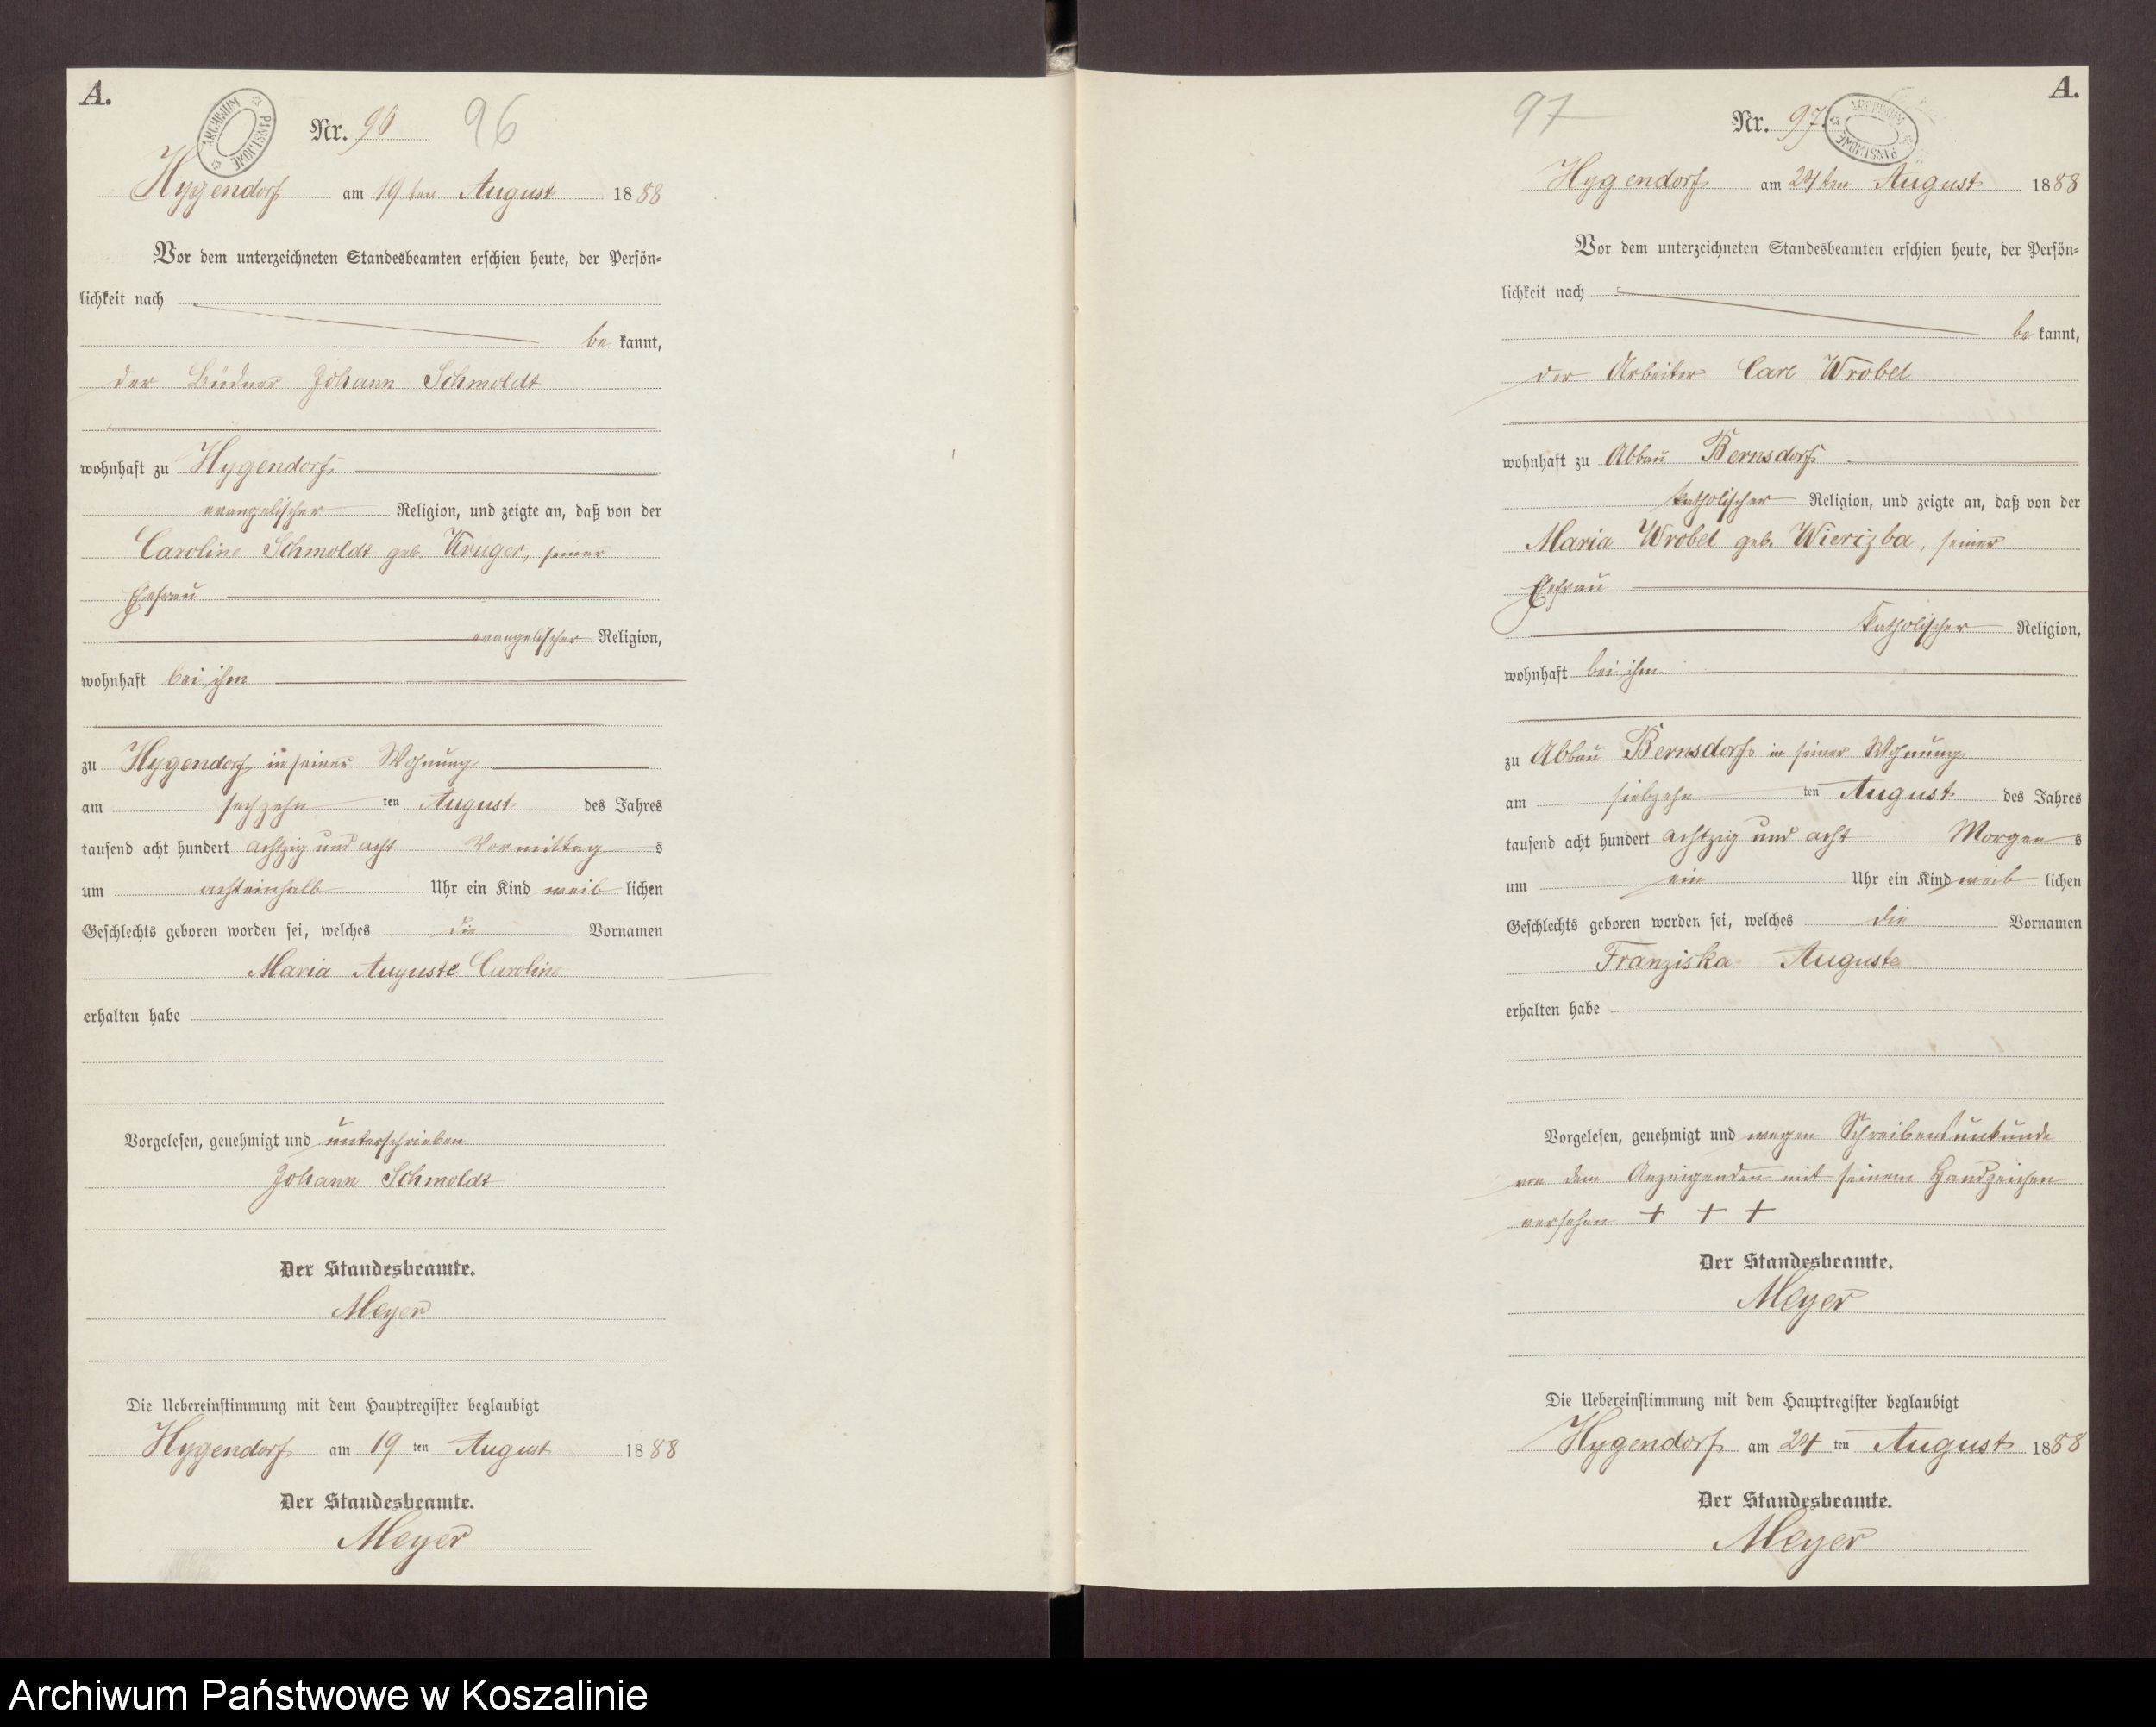 A.
ARCHIWUM PAŃSTWOWE
Nr. 96 96
Hygendorf am 19ten August 1888
Vor dem unterzeichneten Standesbeamten erschien heute, der Persön-
lichkeit nach
be kannt,
der Büdner Johann Schmoldt
wohnhaft zu Hygendorf
evangelischer Religion, und zeigte an, daß von der
Caroline Schmoldt geb. Krüger, seiner
Ehefrau
evangelischer Religion,
wohnhaft bei ihm
zu Hygendorf in seiner Wohnung
am sechzehn ten August des Jahres
tausend acht hundert achtzig und acht Vormittag s
um achteinhalb Uhr ein Kind weib lichen
Geschlechts geboren worden sei, welches die Vornamen
Maria Auguste Caroline
erhalten habe
Vorgelesen, genehmigt und unterschrieben
Johann Schmoldt
Der Standesbeamte.
Meyer
Die Uebereinstimmung mit dem Hauptregister beglaubigt
Hygendorf am 19 ten August 1888
Der Standesbeamte.
Meyer
A.
97 Nr. 97.
ARCHIWUM PAŃSTWOWE
Hygendorf am 24ten August 1888
Vor dem unterzeichneten Standesbeamten erschien heute, der Persön-
lichkeit nach
be kannt,
der Arbeiter Carl Wrobel
wohnhaft zu Abbau Bernsdorf
katholischer Religion, und zeigte an, daß von der
Maria Wrobel geb. Wierizba, seiner
Ehefrau
katholischer Religion,
wohnhaft bei ihm
zu Abbau Bernsdorf in seiner Wohnung
am siebzehn ten August des Jahres
tausend acht hundert achtzig und acht Morgen s
um ein Uhr ein Kind weib lichen
Geschlechts geboren worden sei, welches die Vornamen
Franziska Auguste
erhalten habe
Vorgelesen, genehmigt und wegen Schreibensunkunde
von dem Anzeigenden mit seinem Handzeichen
versehen + + +
Der Standesbeamte.
Meyer
Die Uebereinstimmung mit dem Hauptregister beglaubigt
Hygendorf am 24 ten August 1888
Der Standesbeamte.
Meyer
Archiwum Państwowe w Koszalinie